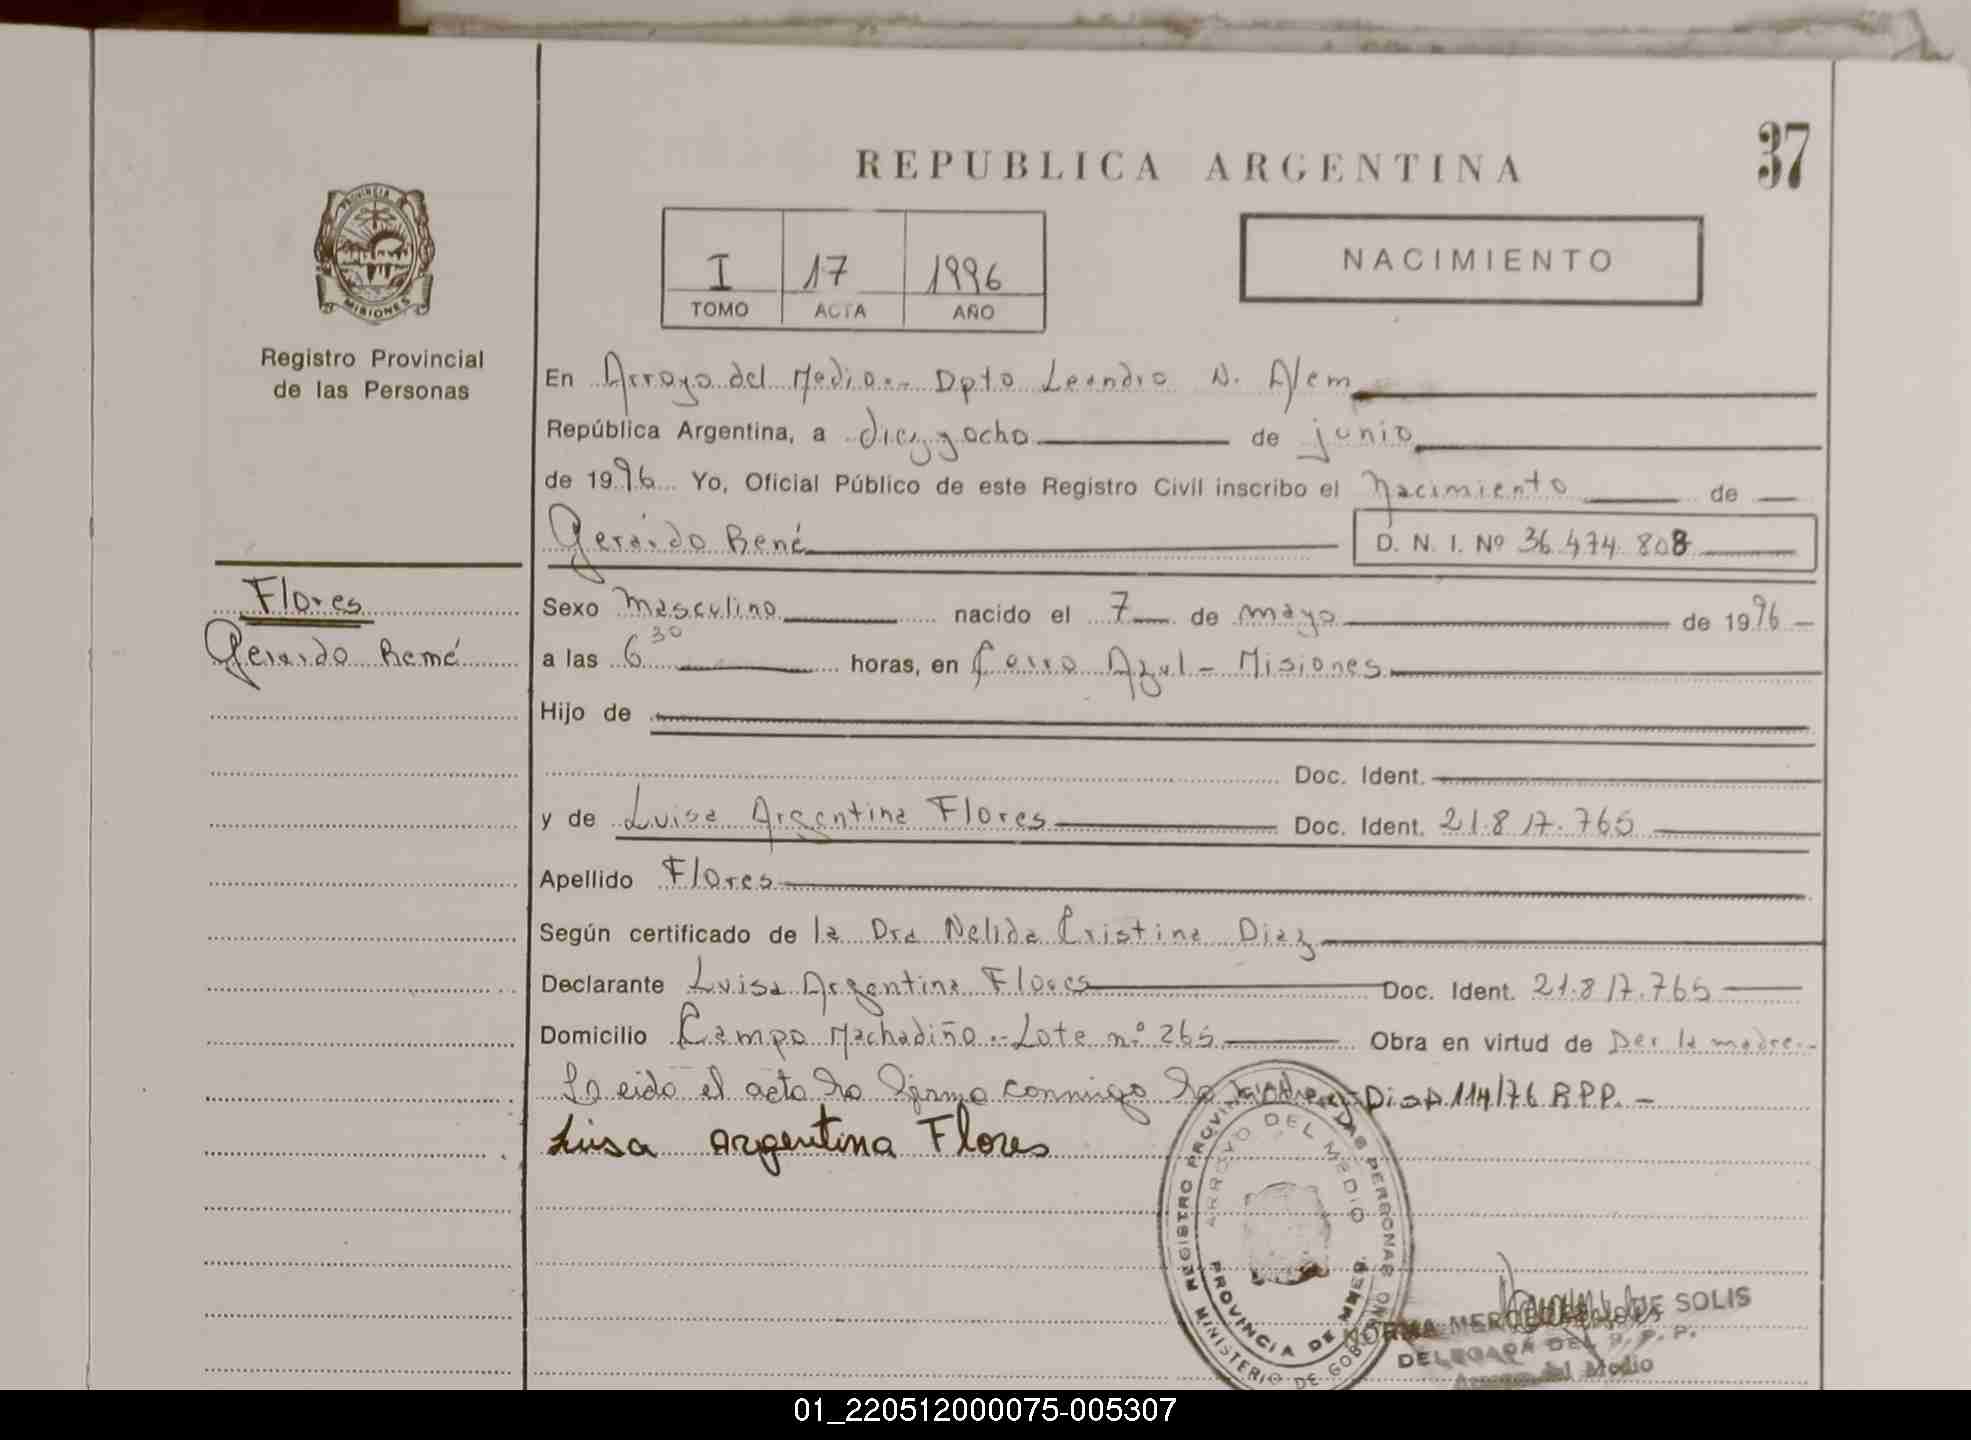 37
REPUBLICA ARGENTINA
PROVINCIA MISIONES
I 17 1996
TOMO ACTA AÑO
NACIMIENTO
Registro Provincial
de las Personas
En Arroyo del Medio.- Dpto Leandro N. Alem
República Argentina, a diez y ocho de junio
de 1996 Yo, Oficial Público de este Registro Civil inscribo el Nacimiento de
Gerardo René D. N. I. Nº 36.474.808
Flores
Gerardo René
Sexo Masculino nacido el 7 de mayo de 1996
a las 6 30 horas, en Cerro Azul - Misiones
Hijo de
Doc. Ident.
y de Luisa Argentina Flores Doc. Ident. 21.817.765
Apellido Flores
Según certificado de la Dra Nelida Cristina Diaz
Declarante Luisa Argentina Flores Doc. Ident. 21.817.765
Domicilio Campo Machadiño.- Lote n.º 265 Obra en virtud de Ser la madre.-
Leido el acta la firma conmigo la madre.- Disp 114/76 R.P.P. -
Luisa Argentina Flores
REGISTRO PROVINCIAL DE LAS PERSONAS
ARROYO DEL MEDIO
PROVINCIA DE MNES.
MINISTERIO DE GOBIERNO
NORMA DE SOLIS
DELEGADA DEL R. P. P.
Arroyo del Medio
01_220512000075-005307